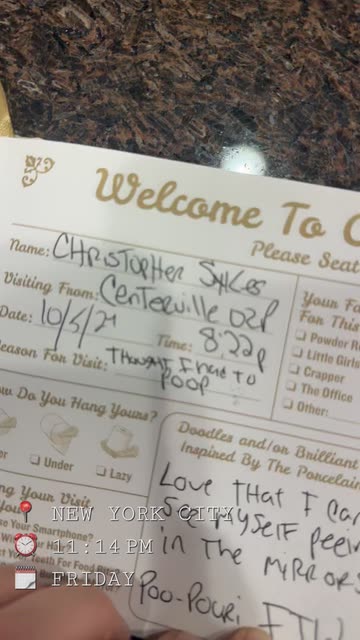 Welcome To
Please Seat
Name: CHRISTOPHER SYKES
Visiting From: CENTERVILLE
Date: 10/5/21 Time: 8:22p
eason For Visit: THOUGHT I HAD TO
POOP
Your Fa
For Thi
☐ Powder Ro
☐ Little Girls
☐ Crapper
☐ The Office
☐ Other:
ow Do You Hang Yours?
er ☐ Under ☐ Lazy
Doodles and/or Brilliant
Inspired By The Porcelain
LOVE THAT I CAN
SEE MYSELF PEEIN
IN THE MIRRORS
POO-POURI FTW
ng Your Visit
se Your Smartphone?
NEW YORK CITY
11:14 PM
FRIDAY